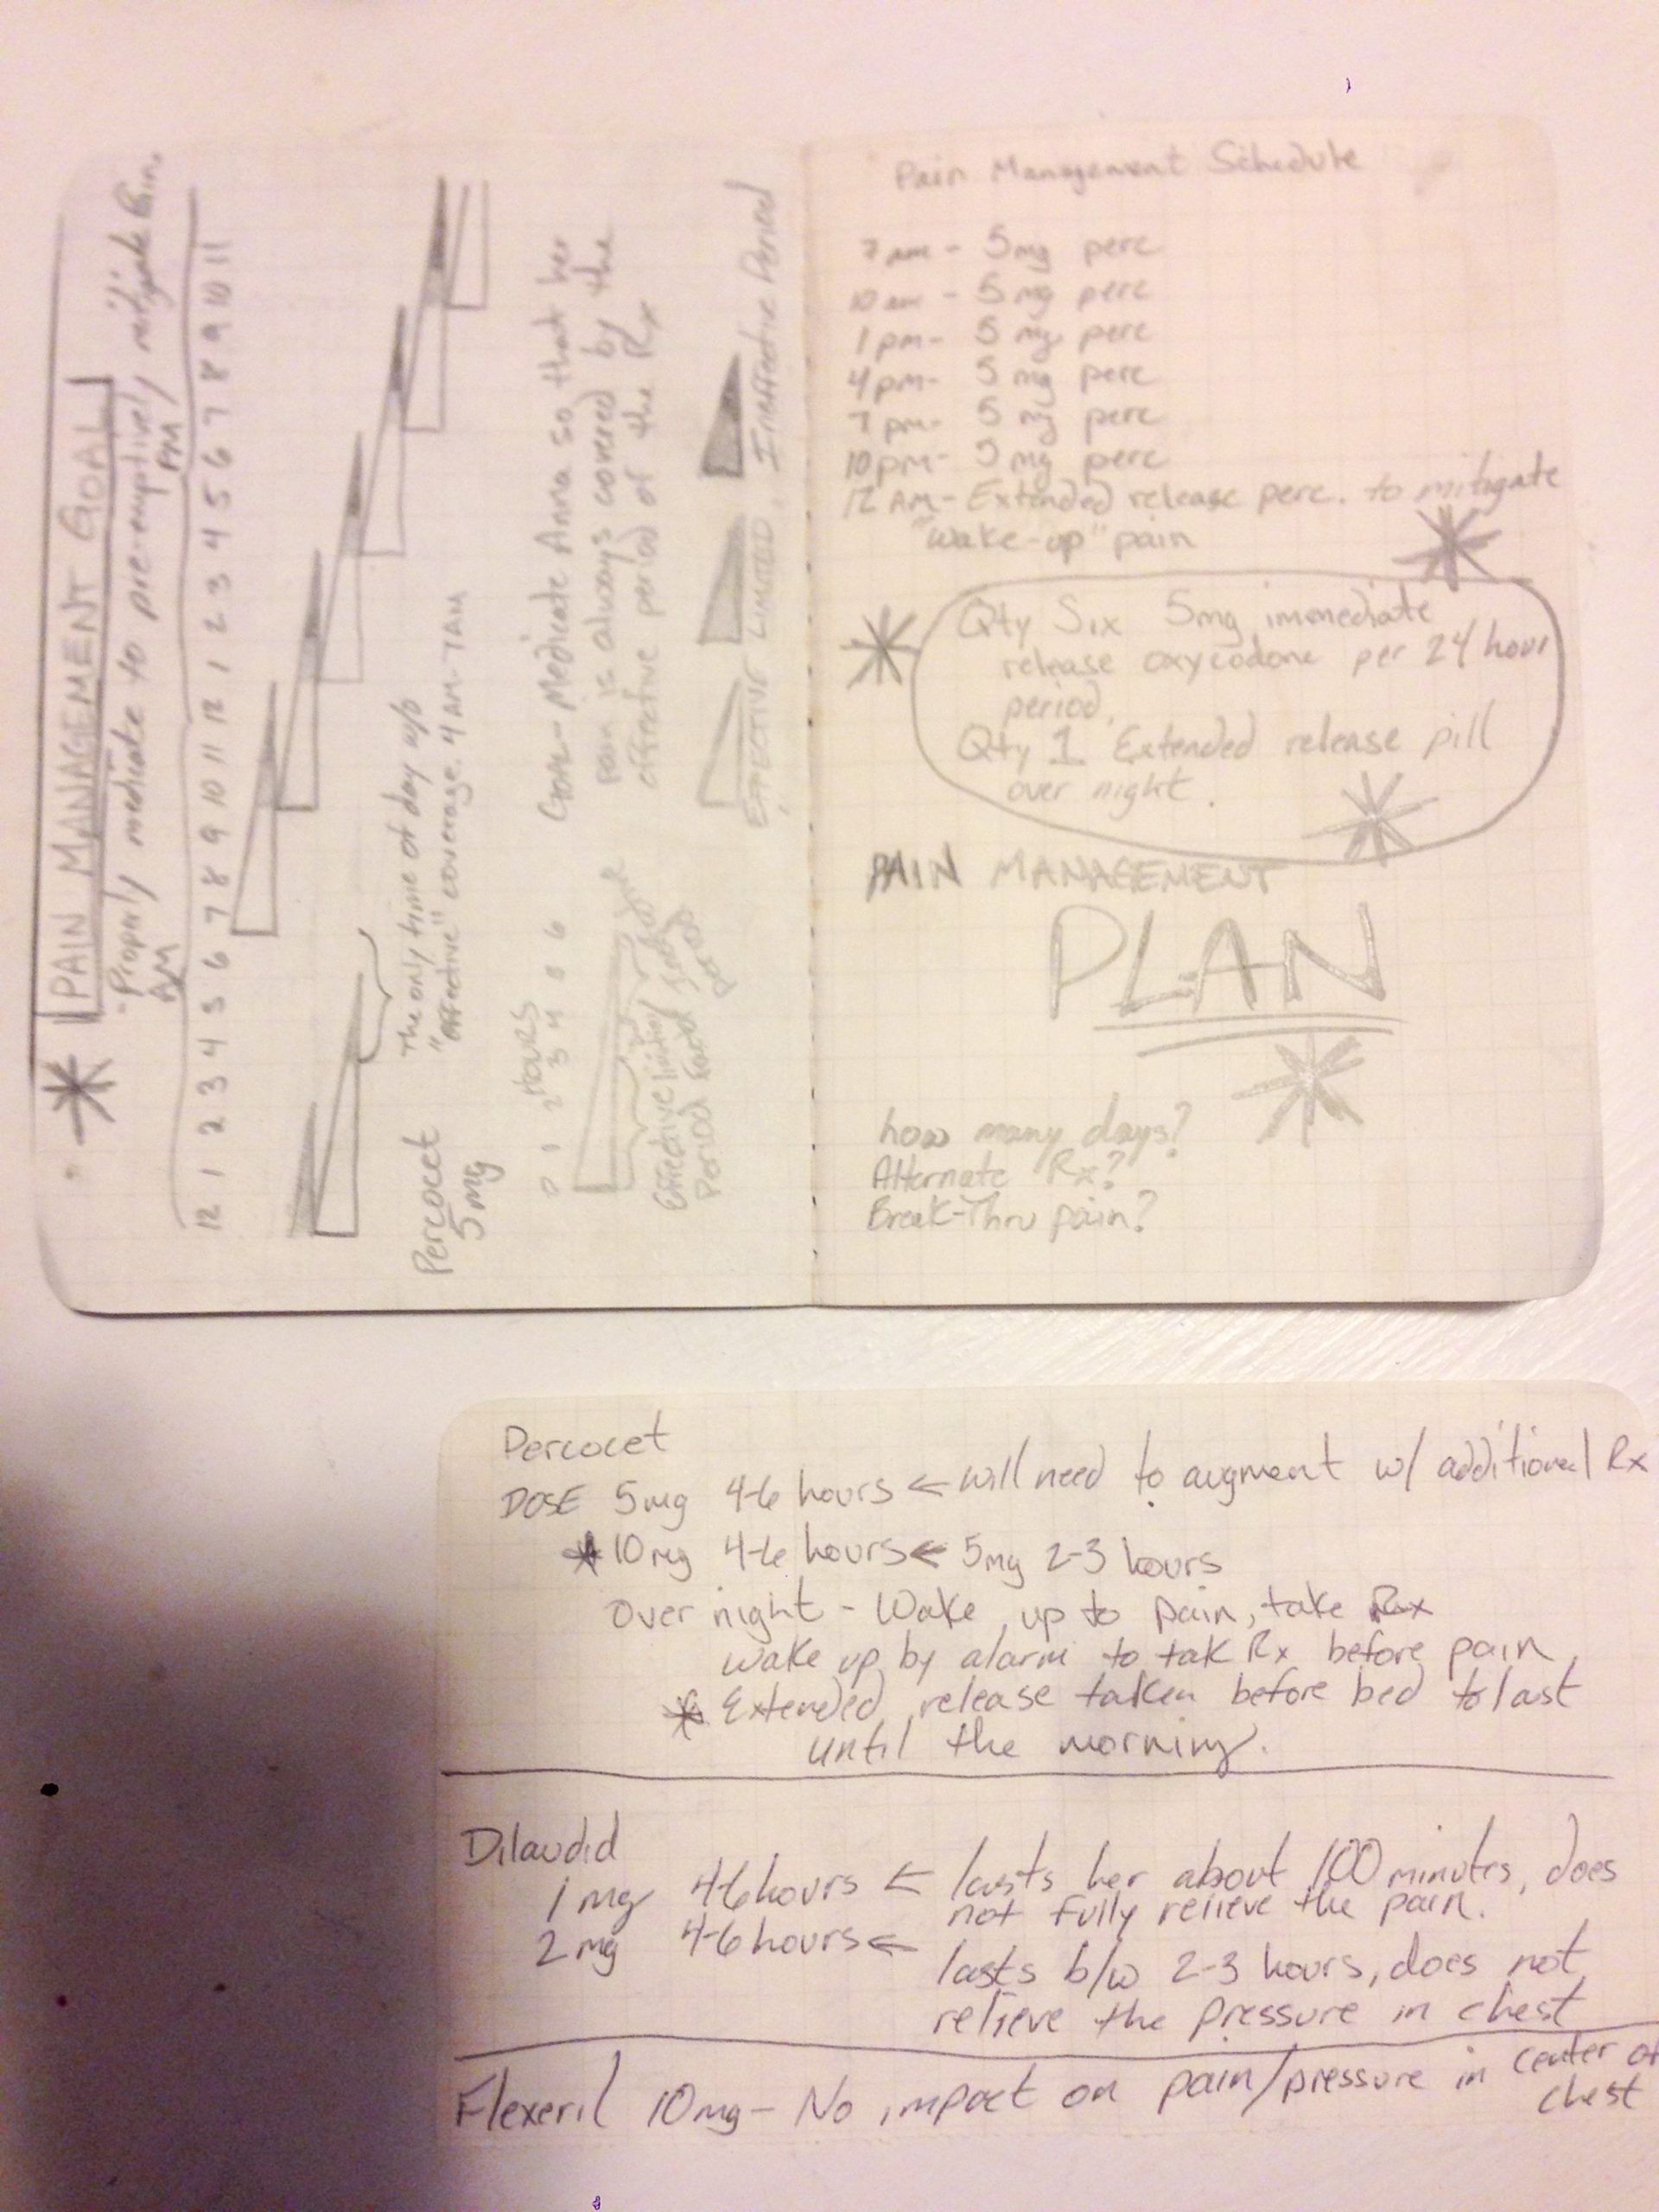 PAIN MANAGEMENT GOAL
- Properly medicate to pre-emptively mitigate Pain.
AM PM
12 1 2 3 4 5 6 7 8 9 10 11 12 1 2 3 4 5 6 7 8 9 10 11
The only time of day w/o
"effective" coverage. 4 AM-7AM
Percocet
5 mg
HOURS
0 1 2 3 4 5 6
Effective limited
Period
Period
GOAL- Medicate Anna so that her
pain is always covered by the
effective period of the Rx
EFFECTIVE, LIMITED, Inaffective Period
Pain Management Schedule
7 am - 5mg perc
10 am - 5 mg perc
1 pm- 5 mg perc
4 pm- 5 mg perc
7 pm- 5 mg perc
10 pm- 5 mg perc
12 AM- Extended release perc. to mitigate
"wake-up" pain
Qty Six 5mg immediate
release oxycodone per 24 hour
period.
Qty 1 Extended release pill
over night.
PAIN MANAGEMENT
PLAN
how many days?
Alternate Rx?
Break-Thru pain?
Percocet
DOSE 5mg 4-6 hours ← will need to augment w/ additional Rx
10mg 4-6 hours ← 5mg 2-3 hours
Over night - Wake up to pain, take Rx
wake up by alarm to tak Rx before pain
Extended release taken before bed to last
until the morning.
Dilaudid
1 mg 4-6 hours ← lasts her about 100 minutes, does
not fully relieve the pain.
2 mg 4-6 hours ←
lasts b/w 2-3 hours, does not
relieve the pressure in chest
Flexeril 10mg - No impact on pain/pressure in center of
chest